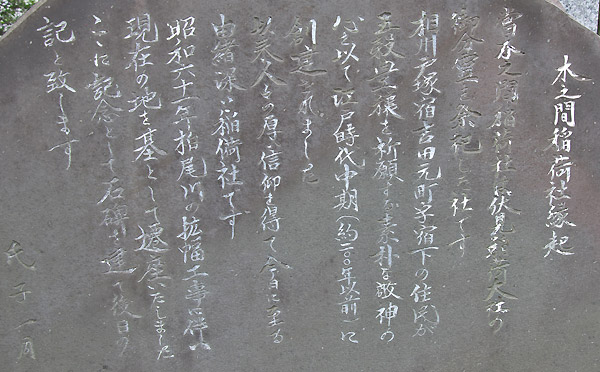 木之間稲荷社縁起
当木之間稲荷社は伏見稲荷大社の
御分霊を祭祀した社です
相州戸塚宿吉田元町字宿下の住民が
五穀豊穣を祈願する素朴な敬神の
心を以て江戸時代中期(約二〇〇年以前)に
創建されました
以来人々の厚い信仰を得て今日に至る
由緒深い稲荷社です
昭和六十一年柏尾川の拡幅工事に伴い
現在の地を基として遷座いたしました
ここに記念として石碑を建て後日の
記と致します
氏子一同